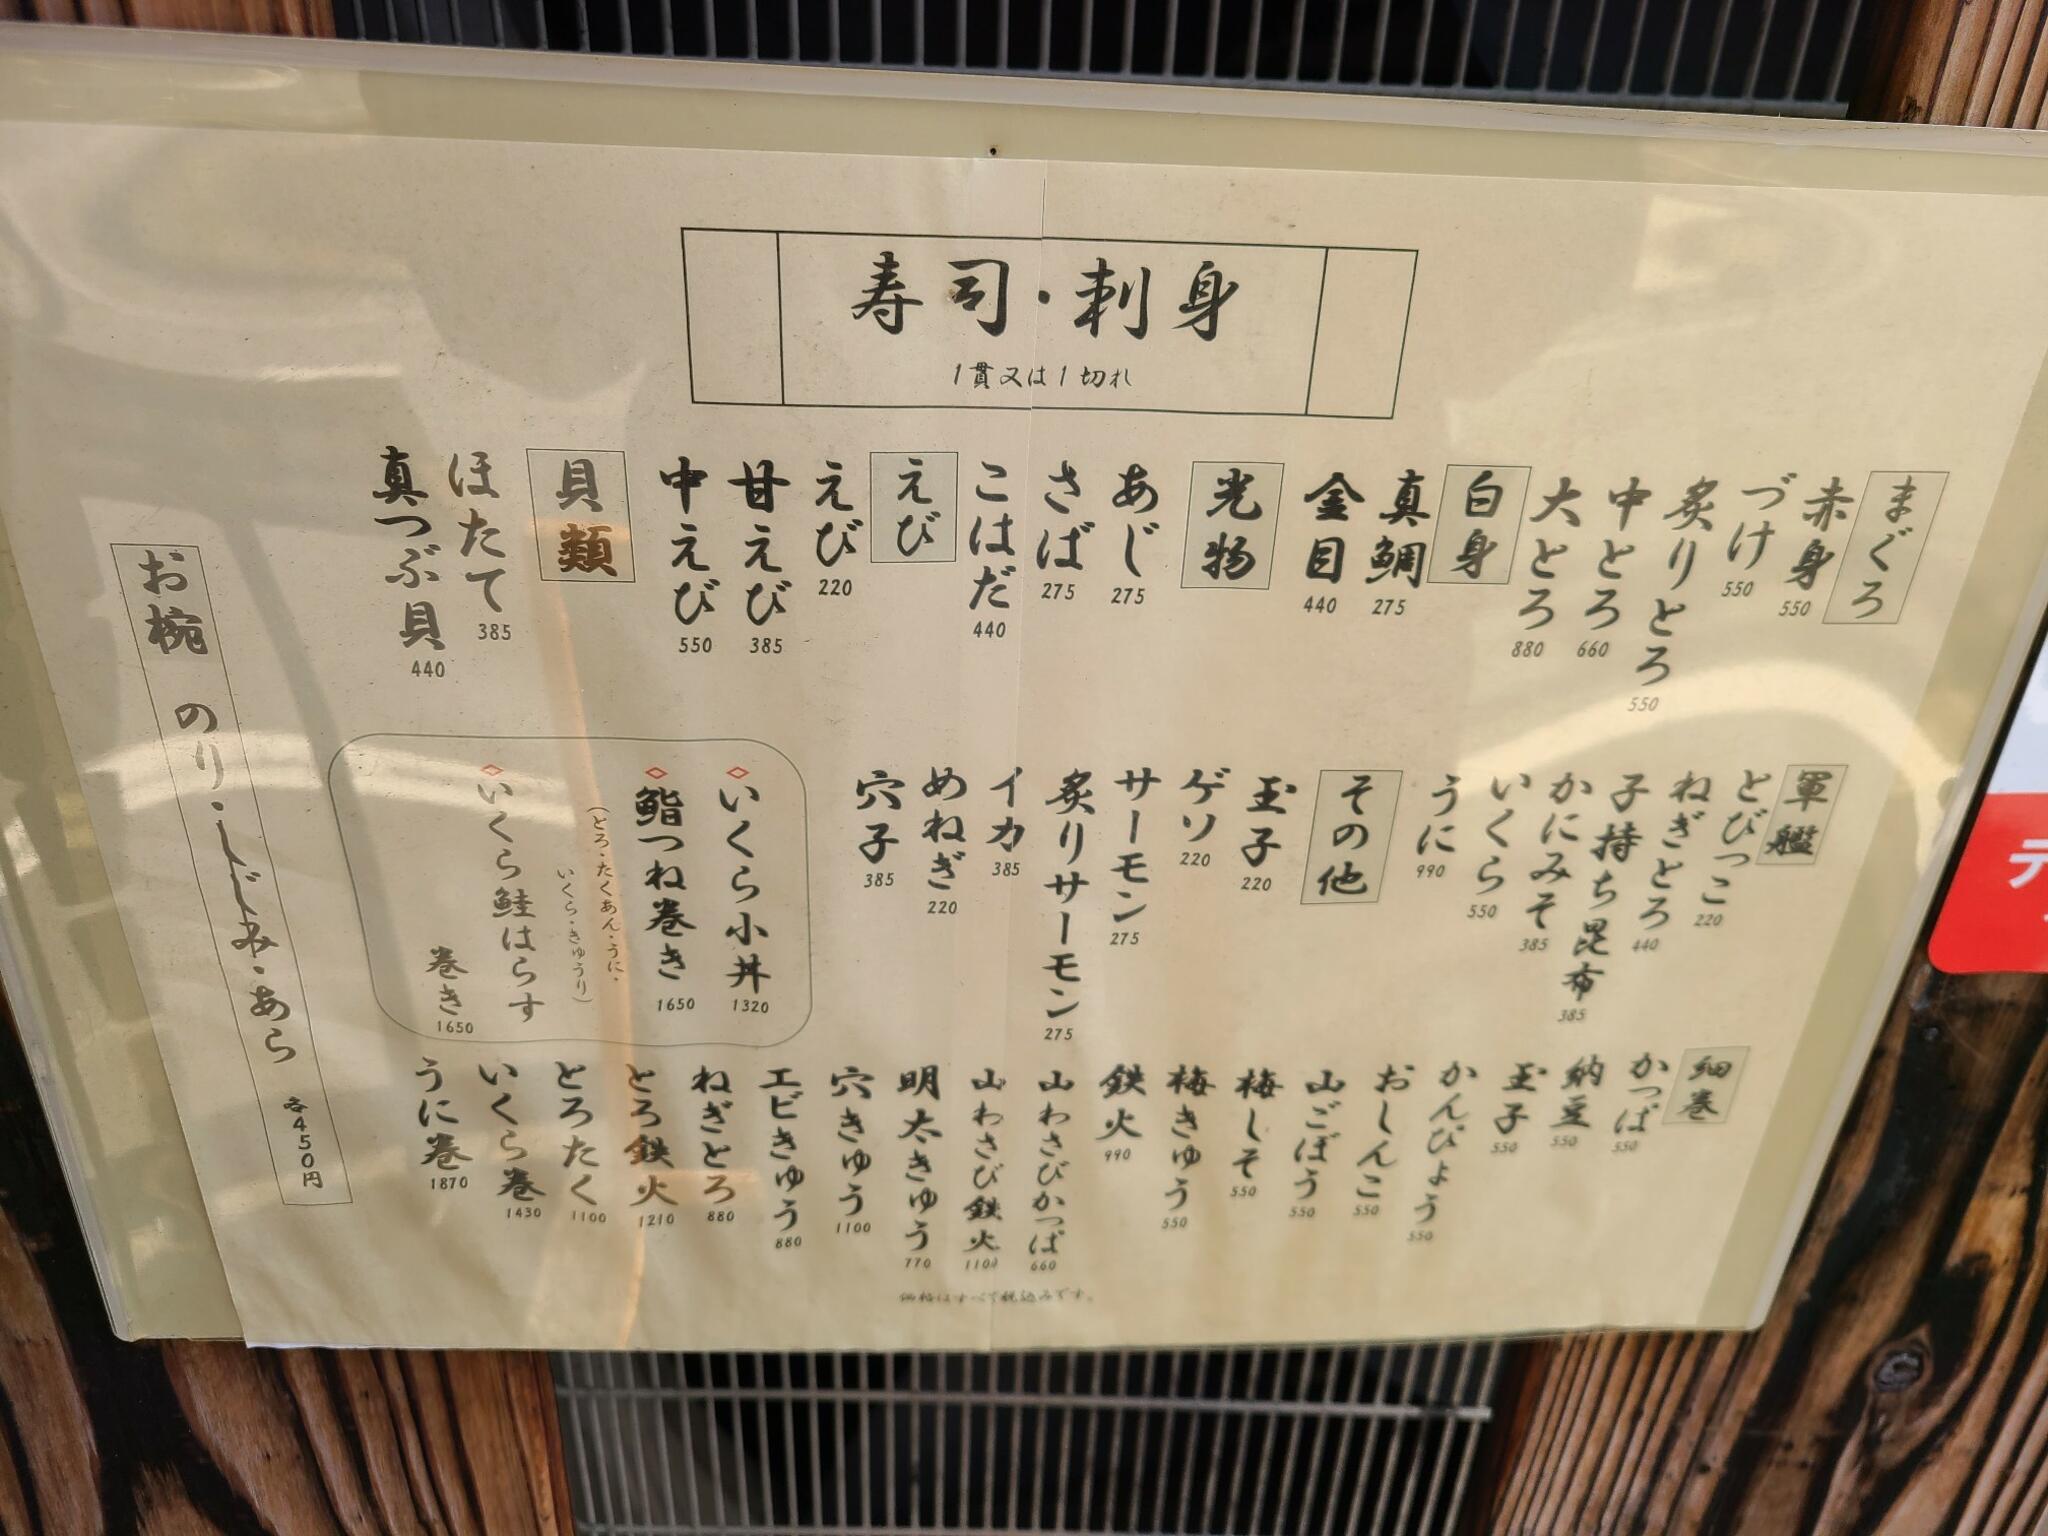 寿司・刺身
1貫又は1切れ
まぐろ
赤身 550
づけ 550
炙りとろ 550
中とろ 660
大とろ 880
白身
真鯛 275
金目 440
光物
あじ 275
さば 275
こはだ 440
えび
えび 220
甘えび 385
中えび 550
貝類
ほたて 385
真つぶ貝 440
軍艦
とびっこ 220
ねぎとろ 440
子持ち昆布 385
かにみそ 385
いくら 550
うに 990
その他
玉子 220
ゲソ 220
サーモン 275
炙りサーモン 275
イカ 385
めねぎ 220
穴子 385
◇いくら小丼 1320
◇鮨つね巻き 1650
(とろ・たくあん・うに・
いくら・きゅうり)
◇いくら鮭はらす
巻き 1650
細巻
かっぱ 550
納豆 550
玉子 550
かんぴょう 550
おしんこ 550
山ごぼう 550
梅しそ 550
梅きゅう 550
鉄火 990
山わさびかっぱ 660
山わさび鉄火 1100
明太きゅう 770
穴きゅう 1100
エビきゅう 880
ねぎとろ 880
とろ鉄火 1210
とろたく 1100
いくら巻 1430
うに巻 1870
お椀 のり・しじみ・あら 各450円
価格はすべて税込みです。
テ